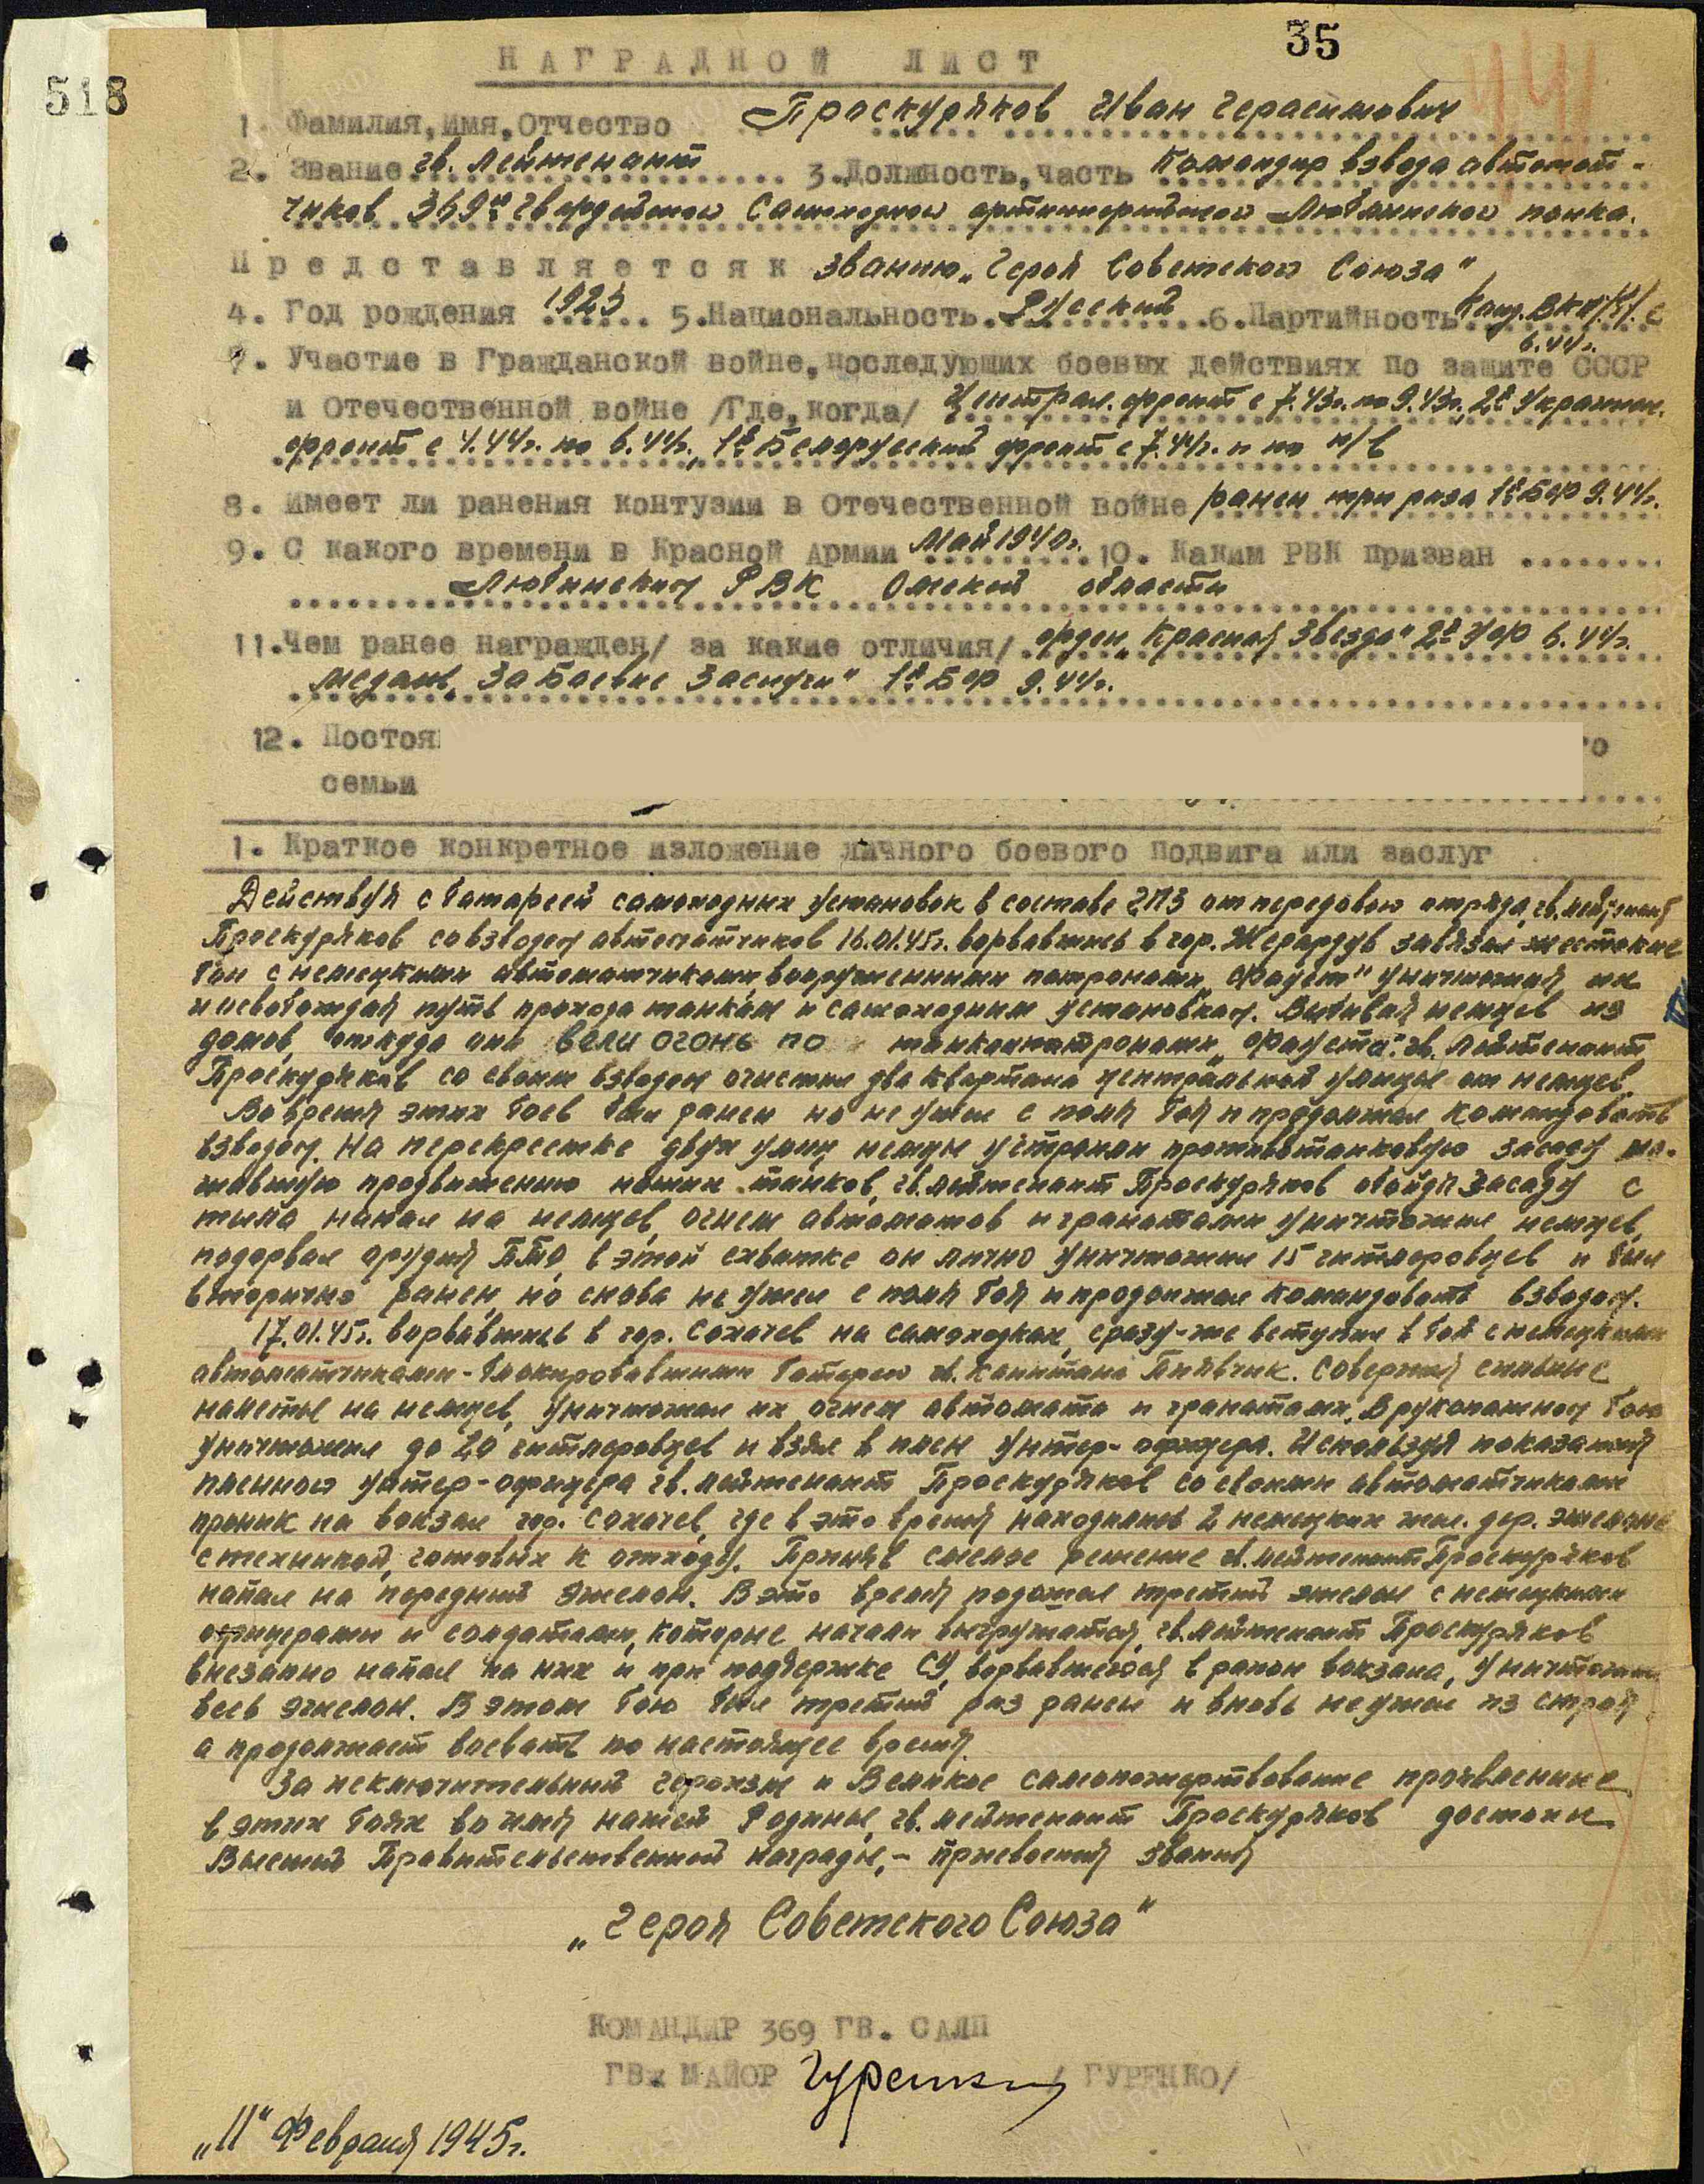 35
518
НАГРАДНОЙ ЛИСТ
1. Фамилия, Имя, Отчество Проскуряков Иван Герасимович
2. Звание гв. лейтенант 3. Должность, часть Командир взвода автомат-
чиков 369й Гвардейского Самоходного артиллерийского Люблинского полка.
Представляется к званию „Героя Советского Союза"
4. Год рождения 1923 5. Национальность Русский 6. Партийность Канд. ВКП/б/ с
6.44г.
7. Участие в Гражданской войне, последующих боевых действиях по защите СССР
и Отечественной войне /Где, когда/ Централ. фронт с 7.43г. по 9.43г., 2й Украинск.
фронт с 4.44г. по 6.44г., 1й Белорусский фронт с 7.44г. и по н/в
8. Имеет ли ранения контузии в Отечественной войне ранен три раза 1й БФ 9.44г.
9. С какого времени в Красной Армии Май 1940г. 10. Каким РВК призван
Любинским РВК Омской области
11. Чем ранее награжден/ за какие отличия/ орден „Красная Звезда" 2й Уф 6.44г.
медаль „За Боевые Заслуги" 1й Бф 9.44г.
12. Постоя
семьи
1. Краткое конкретное изложение личного боевого подвига или заслуг
Действуя с батареей самоходных установок в составе ГПЗ от передового отряда, гв. лейтенант
Проскуряков со взводом автоматчиков 16.01.45г. ворвавшись в гор. Жерардув завязал жестокие
бои с немецкими автоматчиками, вооруженными патронами „Фауст" уничтожая их
и освобождая путь прохода танкам и самоходным установкам. Выбивая немцев из
домов, откуда они вели огонь по танкам патронами „Фауста". гв. лейтенант
Проскуряков со своим взводом очистил два квартала центральной улицы от немцев.
Во время этих боев был ранен но не ушел с поля боя и продолжал командовать
взводом. На перекрестке двух улиц немцы устроили противотанковую засаду ме-
шавшую продвижению наших танков, гв. лейтенант Проскуряков обойдя засаду с
тыла напал на немцев, огнем автоматов и гранатами уничтожил немцев,
подорвал орудия ПТО, в этой схватке он лично уничтожил 15 гитлеровцев и был
вторично ранен, но снова не ушел с поля боя и продолжал командовать взводом.
17.01.45г. ворвавшись в гор. Сохачев на самоходках, сразу-же вступил в бой с немецкими
автоматчиками - блокировавшими батарею гв. капитана Пиявчик. Совершая сильные
налеты на немцев, уничтожал их огнем автомата и гранатами. В рукопашном бою
уничтожил до 20 гитлеровцев и взял в плен унтер-офицера. Используя показаний
пленного унтер-офицера гв. лейтенант Проскуряков со своими автоматчиками
проник на вокзал гор. Сохачев, где в это время находились 2 немецких жел. дор. эшелона
с техникой, готовых к отходу. Приняв смелое решение гв. лейтенант Проскуряков
напал на передний эшелон. В это время подошел третий эшелон с немецкими
офицерами и солдатами, которые начали выгружатся, гв. лейтенант Проскуряков
внезапно напал на них и при поддержке СУ, ворвавшегося в район вокзала, уничтожил
весь эшелон. В этом бою был третий раз ранен и вновь не ушел из строя,
а продолжает воевать по настоящее время.
За исключительный героизм и Великое самопожертвование проявленные
в этих боях во имя нашей Родины, гв. лейтенант Проскуряков достоин
Высшей Правительственной награды, - присвоения звания
„Героя Советского Союза"
КОМАНДИР 369 ГВ. САЛП
ГВ. МАЙОР /ГУРЕНКО/
„11" Февраля 1945г.